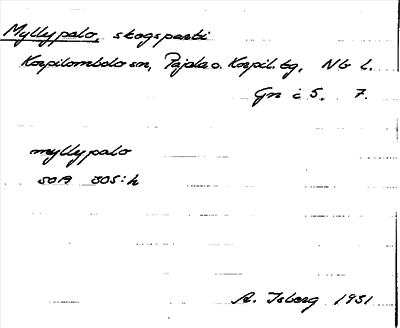 Myllypalo, skogsparti
Korpilombolo sn, Pajala o. Korpil. tg, Nb l.
Gn i 5. 7.
myllypalo
SOA 305:h
A. Isberg 1931